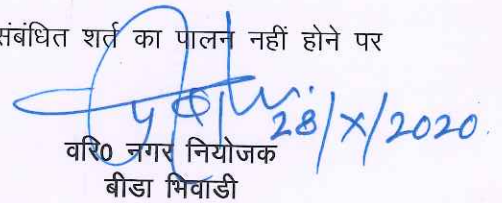 संबंधित शर्त का पालन नहीं होने पर
28/X/2020.
वरि0 नगर नियोजक
बीडा भिवाडी